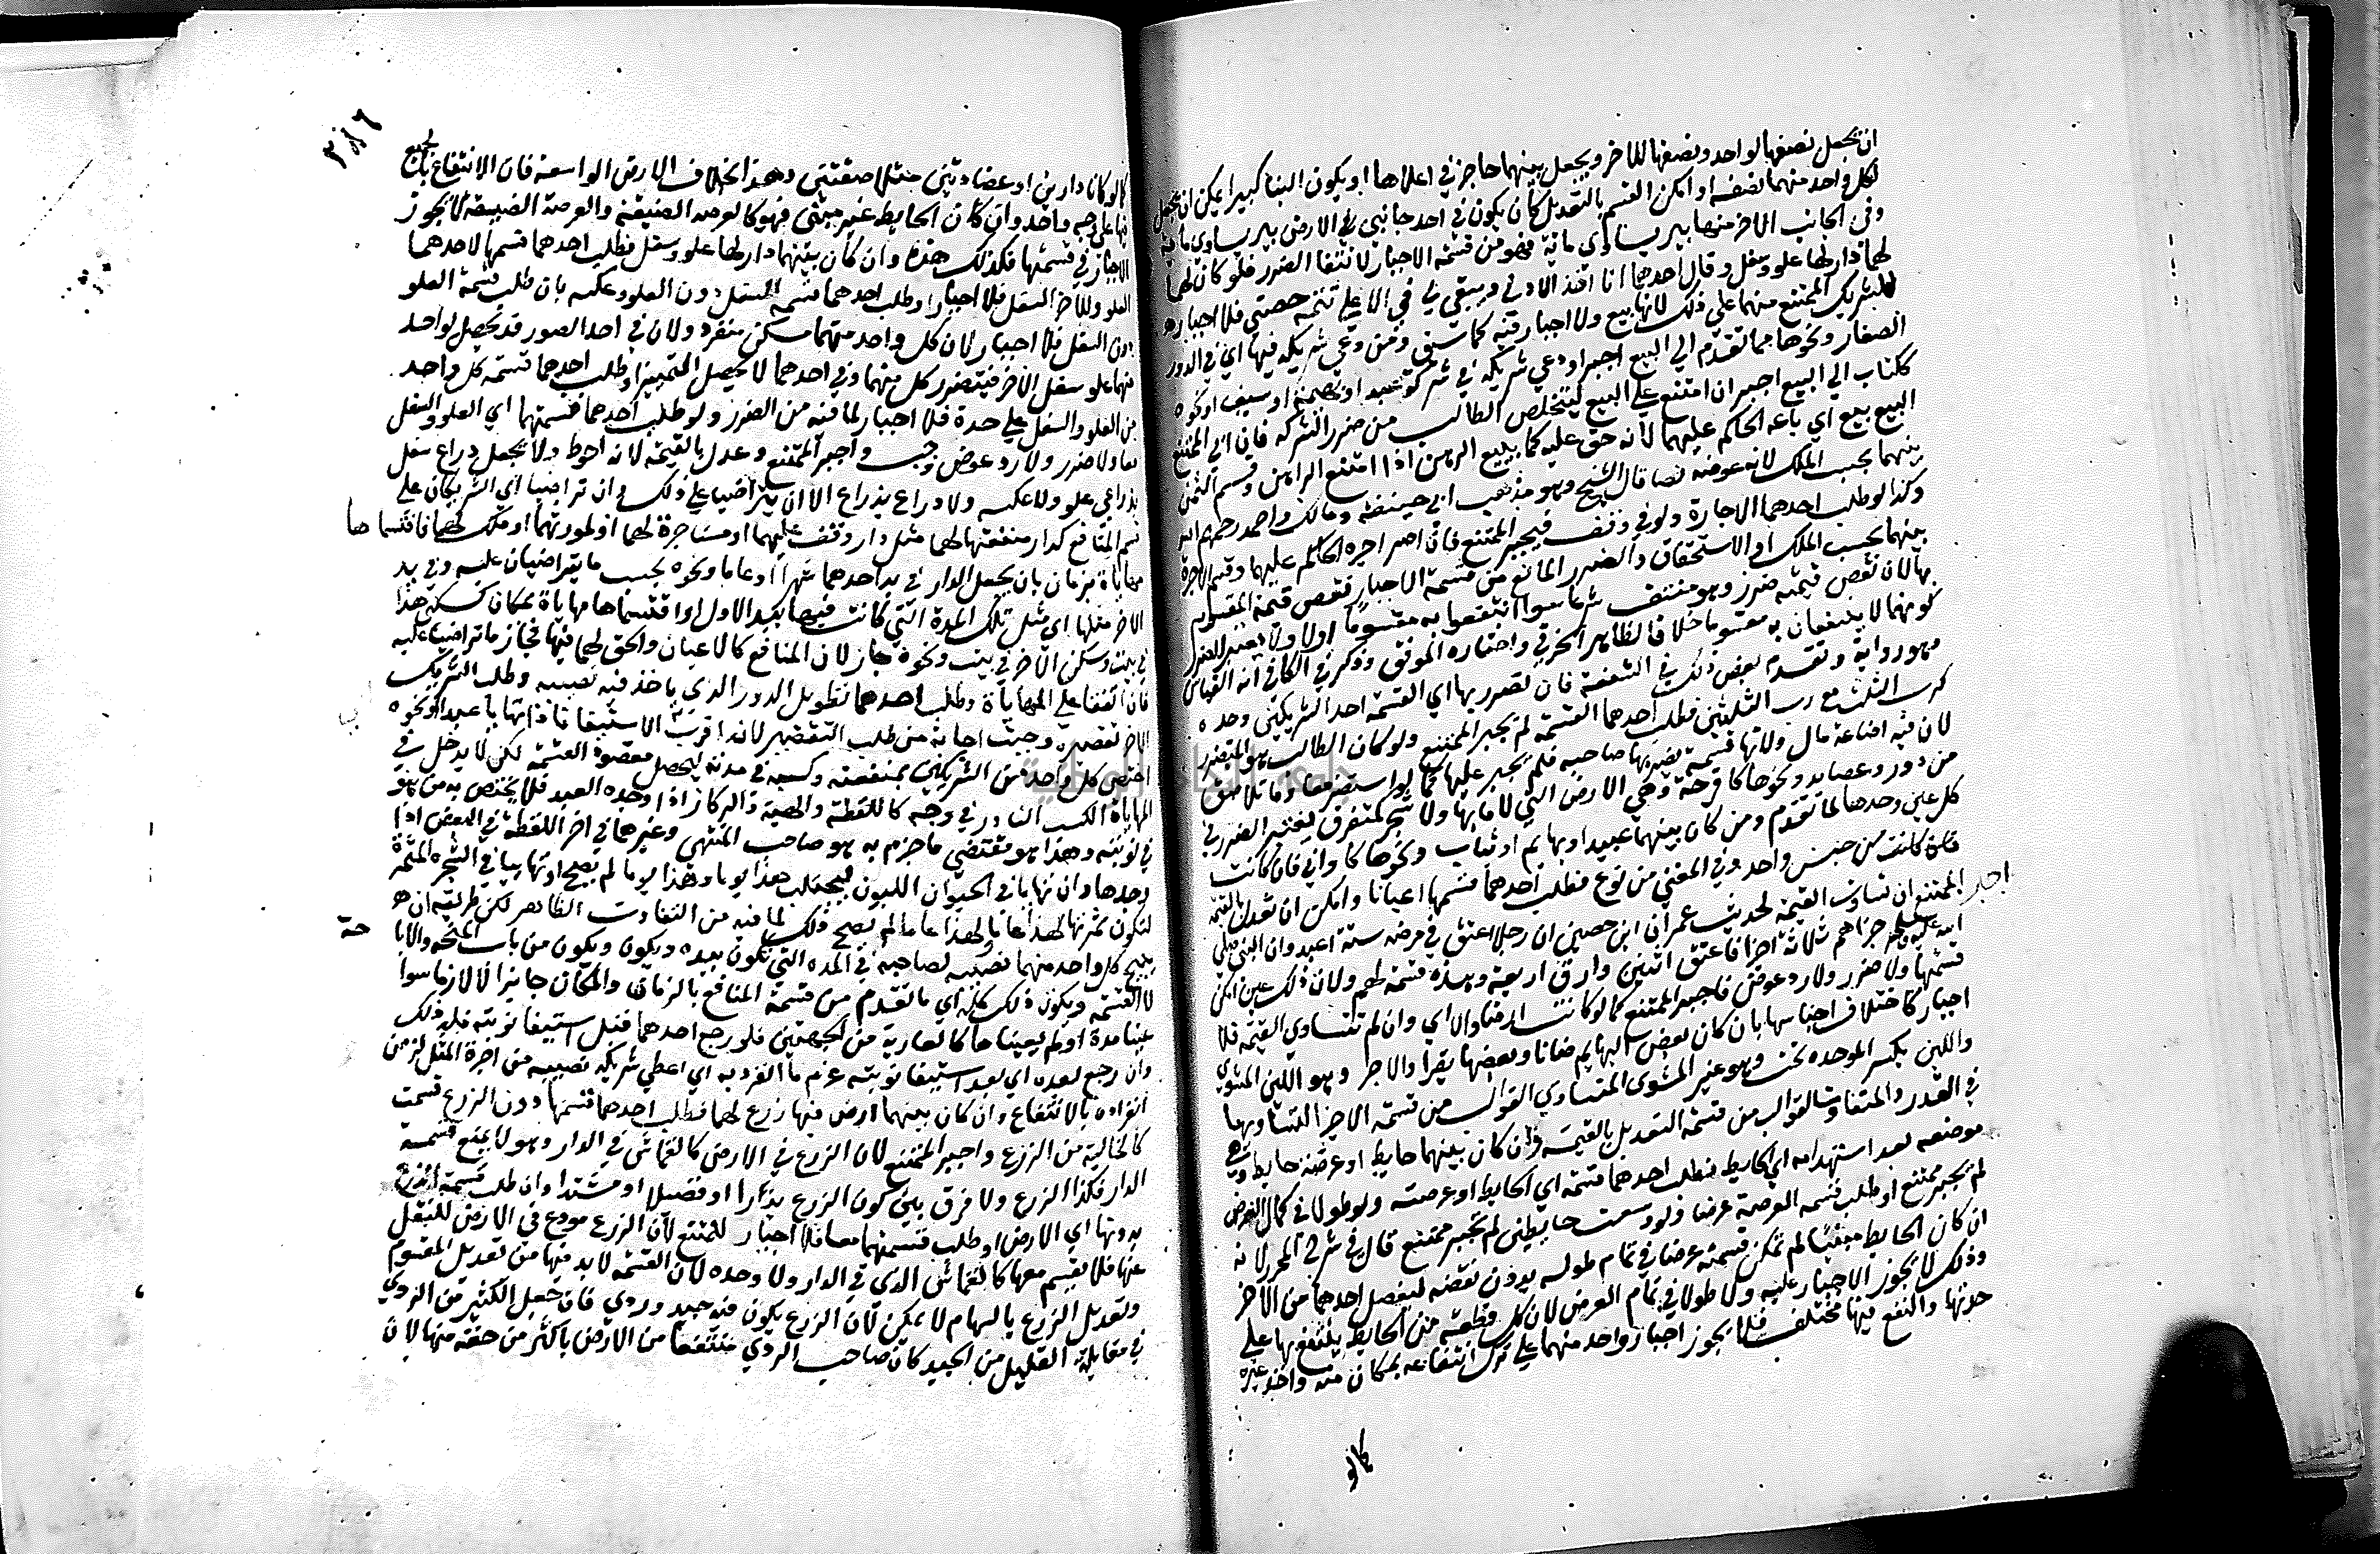 ان تجعل نصفها لواحد ونصفها للاخر ويجعل بينهما حاجز في اعلاها او يكون البنا كبيرا يمكن ان يجعل
لكل واحد منهما نصفه او امكن القسم بالتعديل كان يكون في احد جانبي الارض بير يساوي ماية
وفي الجانب الاخر منها بير يساوي ماية فهو من قسمة الاجبار لانتفا الضرر فلو كان لهما
لهما دار لها علو وسفل وقال احدهما انا اخذ الادنى ويبقى لي في الاعلى تتمة حصتي فلا اجبار
للشريك الممتنع منهما على ذلك لانها بيع ولا اجبار فيه كما سبق ومن دعى شريكه فيها اي في الدور
الصغار ونحوها مما تقدم الى البيع اجبر او دعي شريكه في شركة عبد او بهيمة او سيف ونحوه
ككتاب الى البيع اجبر ان امتنع على البيع ليتخلص الطالب من ضرر الشركة فان ابى الممتنع
البيع بيع اي باعه الحاكم عليهما لانه حق عليه كما يبيع الرهن اذا امتنع الراهن وقسم الثمن
بينهما بحسب الملك لانه عوضه نصا قال الشيخ وهو مذهب ابي حنيفة ومالك واحمد رحمهم الله
وكذا لو طلب احدهما الاجارة ولو في وقف فيجبر الممتنع فان اصر اجره الحاكم عليهما وقسم الاجرة
بينهما بحسب الملك او الاستحقاق والضرر المانع من قسمة الاجبار نقص قيمة المقسوم
بها لان نقص قيمته ضرر وهو منتف شرعا سوا انتفعوا به مقسوما اولا ولا يعتبر الضرر
كونهما لا ينتفعان به مقسوما خلافا لظاهر الخرقي واختاره الموفق وذكر في الكافي انه القياس
وهو رواية وتقدم بعض ذلك في الشفعة فان تضرر بها اي القسمة احد الشريكين وحده
كرب الثلث مع رب الثلثين فطلب احدهما القسمة لم يجبر الممتنع ولو كان الطالب هو المتضرر
لان فيه اضاعة مال ولانها قسمة يضر بها صاحبه فلم يجبر عليها كما لو استضرا معا وما تلاصق
من دور وعضايد ونحوها كاقرحة وهي الارض التي لا ما بها ولا شجر كمتفرق فيعتبر الضرر في
كل عين وحدها لما تقدم ومن كان بينهما عبيد او بهايم او ثياب ونحوها كاواني فان كانت
فان كانت من جنس واحد وفي المغني من نوع فطلب احدهما قسمها اعيانا وامكن ان تعدل بالقيمة
اجبر الممتنع ان تساوت القيمة لحديث عمران ابن حصين ان رجلا اعتق في مرضه ستة اعبد وان النبي صلى
الله عليه وسلم جزاهم ثلاثة اجزا فاعتق اثنين وارق اربعة وهذه قسمة لهم ولان ذلك عين امكن
قسمتها ولا ضرر ولا رد عوض فاجبر الممتنع كما لو كانت ارضا والا اي وان لم تتساوى القيمة فلا
اجبار كاختلاف اجناسها بان كان بعض البهايم ضانا وبعضها بقرا والاجر وهو اللبن المشوي
واللبن بكسر الموحدة تحت وهو غير المشوي المتساوي القوالب من قسمة الاجزا للتساويها
في القدر والمتفاوت القوالب من قسمة التعديل بالقيمة وان كان بينهما حايط او عرصة حايط وهي
موضعه بعد استهدامه اي الحايط فطلب احدهما قسمته اي الحايط او عرصته ولو طولا في كمال العرض
لم يجبر ممتنع او طلب قسمه العرصة عرضا ولو وسعت حايطين لم يجبر ممتنع قال في شرح المحرر لانه
ان كان الحايط مبنيا لم تمكن قسمته عرضا في تمام طوله بدون نقضه لينفصل احدهما من الاخر
وذلك لا يجوز الاجبار عليه ولا طولا في تمام العرض لان كل قطعة من الحايط ينتفع بها على
حدتها والنفع فيها مختلف فلا يجوز اجبار واحد منهما على ترك انتفاعه بمكان منه واخذ غيره
كما لو
٣٨٦
كما لو كانا دارين او عضادتين متلاصقتين وهذا بخلاف الارض الواسعة فان الانتفاع بجميع
فيها على وجه واحد وان كان الحايط غير مبني فهو كالعرصة الضيقة والعرصة الضيقة لا يجوز
الاجبار في قسمتها فكذلك هذه وان كان بينهما دار لها علو وسفل فطلب احدهما قسمها لاحدهما
العلو وللاخر السفل فلا اجبار او طلب احدهما قسمة السفل دون العلو وعكسه بان طلب قسمة العلو
دون السفل فلا اجبار لان كل واحد منهما مسكن منفرد ولان في احد الصور قد يحصل لواحد
منهما علو سفل الاخر فيتضرر كل منهما وفي احدهما لا يحصل التمييز او طلب احدهما قسمة كل واحد
من العلو والسفل على حدة فلا اجبار لما فيه من الضرر ولو طلب احدهما قسمتهما اي العلو والسفل
معا ولا ضرر ولا رد عوض وجب واجبر الممتنع وعدل بالقيمة لانه احوط ولا يجعل ذراع سفل
بذراعي علو ولا عكسه ولا ذراع بذراع الا ان يتراضيا على ذلك وان تراضيا اي الشريكان على
قسم المنافع كدار منفعتها لهما مثل دار وقف عليهما او مستاجرة لهما او ملك لهما فاقتسماها
مهاياة بزمان بان يجعل الدار في يد احدهما شهرا او عاما ونحوه بحسب ما يتراضيان عليه وفي يد
الاخر مثلها اي مثل تلك المدة التي كانت فيها بيد الاول او اقتسماها مهاياة بمكان كسكنى هذا
في بيت وسكنى الاخر في بيت ونحوه جاز لان المنافع كالاعيان والحق لهما فيها فجاز ما تراضيا عليه
فان اتفقا على المهاياة وطلب احدهما تطويل الدور الذي ياخذ فيه نصيبه وطلب الشريك
الاخر تقصيره وجبت اجابة من طلب التقصير لانه اقرب الى الاستيفا فاذا تهايا عبدا ونحوه
اختص كل واحد من الشريكين بمنفعته وكسبه في مدته ليحصل مقصود القسمة لكن لا يدخل في
المهاياة الكسب النادر في وجه كاللقطة والهبة والركاز اذا وجده العبد فلا يختص به من هو
في نوبته وهذا هو مقتضى ما جزم به هو صاحب المنتهى وغيرهما في اخر اللقطة في البعض اذا
وجدها وان تهايا في الحيوان اللبون ليحتلب هذا يوما وهذا يوما لم يصح او تهايا في الشجرة المثمرة
لتكون ثمرتها لهذا عاما ولهذا عاما لم يصح ذلك لما فيه من التفاوت الظاهر لكن طريقه ان
يبيح كل واحد منهما نصيبه لصاحبه في المدة التي تكون بيده ويكون ويكون من باب المنحة والابا
حة
لا القسمة ويكون ذلك كله اي ما تقدم من قسمة المنافع بالزمان والمكان جايزا لا لازما سوا
عينا مدة او لم يعيناها كالعارية من الجهتين فلو رجع احدهما قبل استيفا نوبته فله ذلك
وان رجع بعده اي بعد استيفا نوبته غرم ما انفرد به اي اعطى شريكه نصيبه من اجرة المثل لزمن
انفراده بالانتفاع وان كان بينهما ارض فيها زرع لهما فطلب احدهما قسمتها دون الزرع قسمت
كالخالية من الزرع واجبر الممتنع لان الزرع في الارض كالقماش في الدار وهو لا يمنع قسمة
الدار فكذا الزرع ولا فرق بين كون الزرع بذرا او قصيلا او مشتدا وان طلب قسمة الزرع
بدونها اي الارض او طلب قسمتهما معا فلا اجبار للممتنع لان الزرع مودع في الارض للنقل
عنها فلا يقسم معها كالقماش الذي في الدار ولا وحده لان القسمة لا بد فيها من تعديل المقسوم
وتعديل الزرع بالسهام لا يمكن لان الزرع يكون فيه جيد وردي فان جعل الكثير من الردي
في مقابلة القليل من الجيد كان صاحب الردي منتفعا من الارض باكثر من حقه منها لان